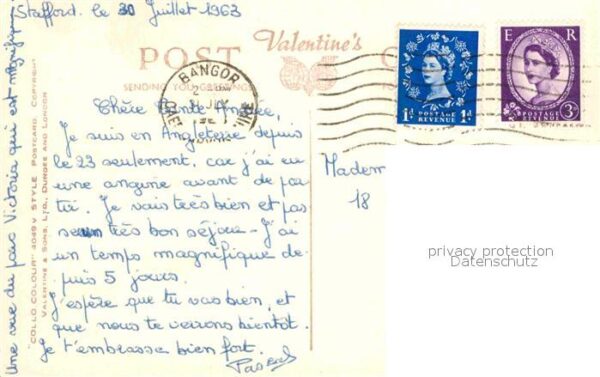 Stafford. le 30 Juillet 1963
POST
Valentine's
SENDING YOU GREETINGS
BANGOR
Chère Tante Andrée,
Je suis en Angleterre depuis
le 23 seulement, car j'ai eu
une angine avant de par-
tir. Je vais très bien et pas
se un très bon séjour. J'ai
un temps magnifique de-
puis 5 jours.
J'espère que tu vas bien, et
que nous te verrons bientôt.
Je t'embrasse bien fort.
Pascal
Madem
18
1D POSTAGE REVENUE 1D
E R
POSTAGE REVENUE 3D
privacy protection
Datenschutz
Une vue du pays Victoria qui est magnifique
"COLLO COLOUR" 4049 V STYLE POSTCARD. COPYRIGHT
VALENTINE & SONS, LTD., DUNDEE AND LONDON